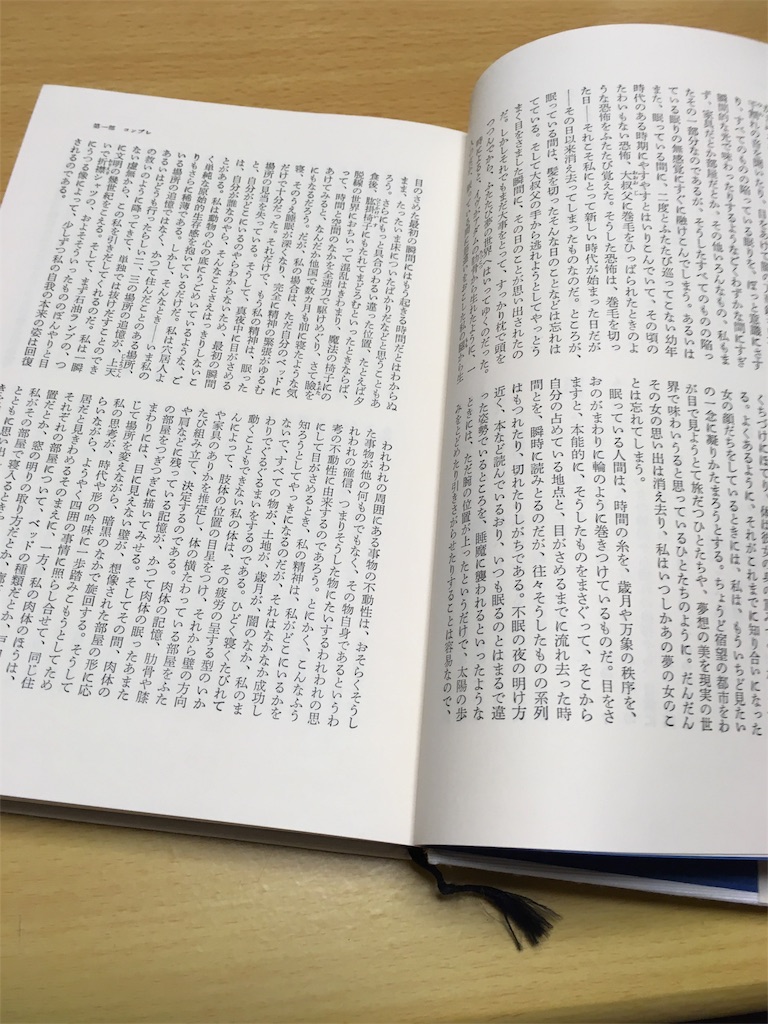 り、すべてのものの陥っている眠りを、ぽっと意識にさす
瞬間的な光で味わったりするようなごくわずかな間にすぎ
ず、家具だとか部屋だとか、その他いろんなもの、私もま
たその一部分なのであるが、そうしたすべてのものの陥っ
ている眠りの無感覚にすぐに融けこんでしまう。あるいは
また、眠っている間に、二度とふたたび巡ってこない幼年
時代のある時期にやすやすとはいりこんでいて、その頃の
たわいもない恐怖、大叔父に巻毛をひっぱられたときのよ
うな恐怖をふたたび覚えた。そうした恐怖は、巻毛を切っ
た日――それこそ私にとって新しい時代が始まった日だが
――その日以来消え去ってしまったものなのだ。ところが、
眠っている間は、髪を切ったそんな日のことなどは忘れは
てている。そして大叔父の手から逃れようとしてやっとう
まく目をさました瞬間に、その日のことが思い出されたの
だ。しかしそれでもまだ大事をとって、すっかり枕で頭を
つつんでから、ふたたび夢の世界にはいってゆくのだった。
る。よくあるように、それがこれまでに知り合いになった
女の顔だちをしているときには、私は、もういちど見たい
の一念に凝りかたまろうとする。ちょうど宿望の都市をわ
が目で見ようとて旅だつひとたちや、夢想の美を現実の世
界で味わいうると思っているひとたちのように。だんだん
その女の思い出は消え去り、私はいつしかあの夢の女のこ
とは忘れてしまう。
眠っている人間は、時間の糸を、歳月や万象の秩序を、
おのがまわりに輪のように巻きつけているものだ。目をさ
ますと、本能的に、そうしたものをまさぐって、そこから
自分の占めている地点と、目がさめるまでに流れ去った時
間とを、瞬時に読みとるのだが、往々そうしたものの系列
はもつれたり、切れたりしがちである。不眠の夜の明け方
近く、本など読んでいるおり、いつも眠るのとはまるで違
った姿勢でいるところを、睡魔に襲われるといったような
ときには、ただ腕の位置が上ったというだけで、太陽の歩
みをとどめたり引きさがらせたりすることは容易なので、
第一部 コンブレ
目のさめた最初の瞬間にはもう起きる時間だとはわからぬ
まま、たったいま床についたばかりだなどと思うこともあ
ろう。さらにもっと具合のわるい違った位置、たとえば夕
食後、肱掛椅子にもたれてまどろむといったときならば、
脱線の世界におちいって混乱はきわまり、魔法の椅子にの
って、時間と空間のなかを全速力で駆けめぐり、さて瞼を
あけてみると、なんだか他国で数カ月も前に寝たような気
にもなるだろう。だが、私の場合は、ただ自分のベッドに
寝、そのうえ睡眠が深くなり、完全に精神の緊張がゆるむ
だけで十分だった。それだけで、もう私の精神は、眠った
場所の見当を失っている。そうして、真夜中に目がさめる
と、自分がどこにいるのやらわからないため、最初の瞬間
は、自分が誰なのやら、そんなことさえはっきりしないこ
とがある。私は動物の心の底にうごめいているような、ご
く単純な原始的生存感を抱いているだけだ。私は穴居人よ
りもさらに稀薄である。しかし、そんなとき、――いま私の
いる場所の追憶ではなく、かつて住んだことのある場所、
あるいはどうも行ったらしい二、三の場所の追憶が、上天
の救いのように降ってきて、単独では抜けだすことのでき
ない虚無から、この私を引きだしてくれるのだ。私は一瞬
に文明の幾世紀をこえる。そして、まず石油ランプの、つ
いで折襟シャツの、およそそういったもののぼんやり目
にうつる像によって、少しずつ私の自我の本来の姿は回復
されるのである。
われわれの周囲にある事物の不動性は、おそらくそうし
た事物が他の何ものでもなく、その物自身であるというわ
れわれの確信、つまりそうした物にたいするわれわれの思
考の不動性に由来するのであろう。とにかく、こんなふう
にして目がさめるとき、私の精神は、私がどこにいるかを
知ろうとしてやっきになるのだが、それはなかなか成功し
ないで、すべての物が、土地が、歳月が、闇のなか、私のま
わりでぐるぐるまいをするのである。ひどく寝くたびれて
動くこともできない私の体は、その疲労の呈する型のいか
んによって、肢体の位置の目星をつけ、それから壁の方向
や家具のありかを推定し、体の横たわっている部屋をふた
たび組み立て、決定するのである。肉体の記憶、肋骨や膝
や肩などに残っている記憶が、かつて肉体の眠ったあまた
の部屋をつぎつぎに描いてみせる。そしてその間、肉体の
まわりには、目に見えない壁が、想像された部屋の形に応
じて場所を変えながら、暗黒のなかで旋回する。そうして
私の思考が、時代や形の吟味に一歩踏みこもうとしてため
らいながら、ようやく四囲の事情に照らし合せて、同じ住
居だと見きわめるそのまえに、一方、私の肉体のほうは、
それぞれの部屋について、ベッドの種類だとか、戸口の位
置だとか、窓の明りの取り方だとか、